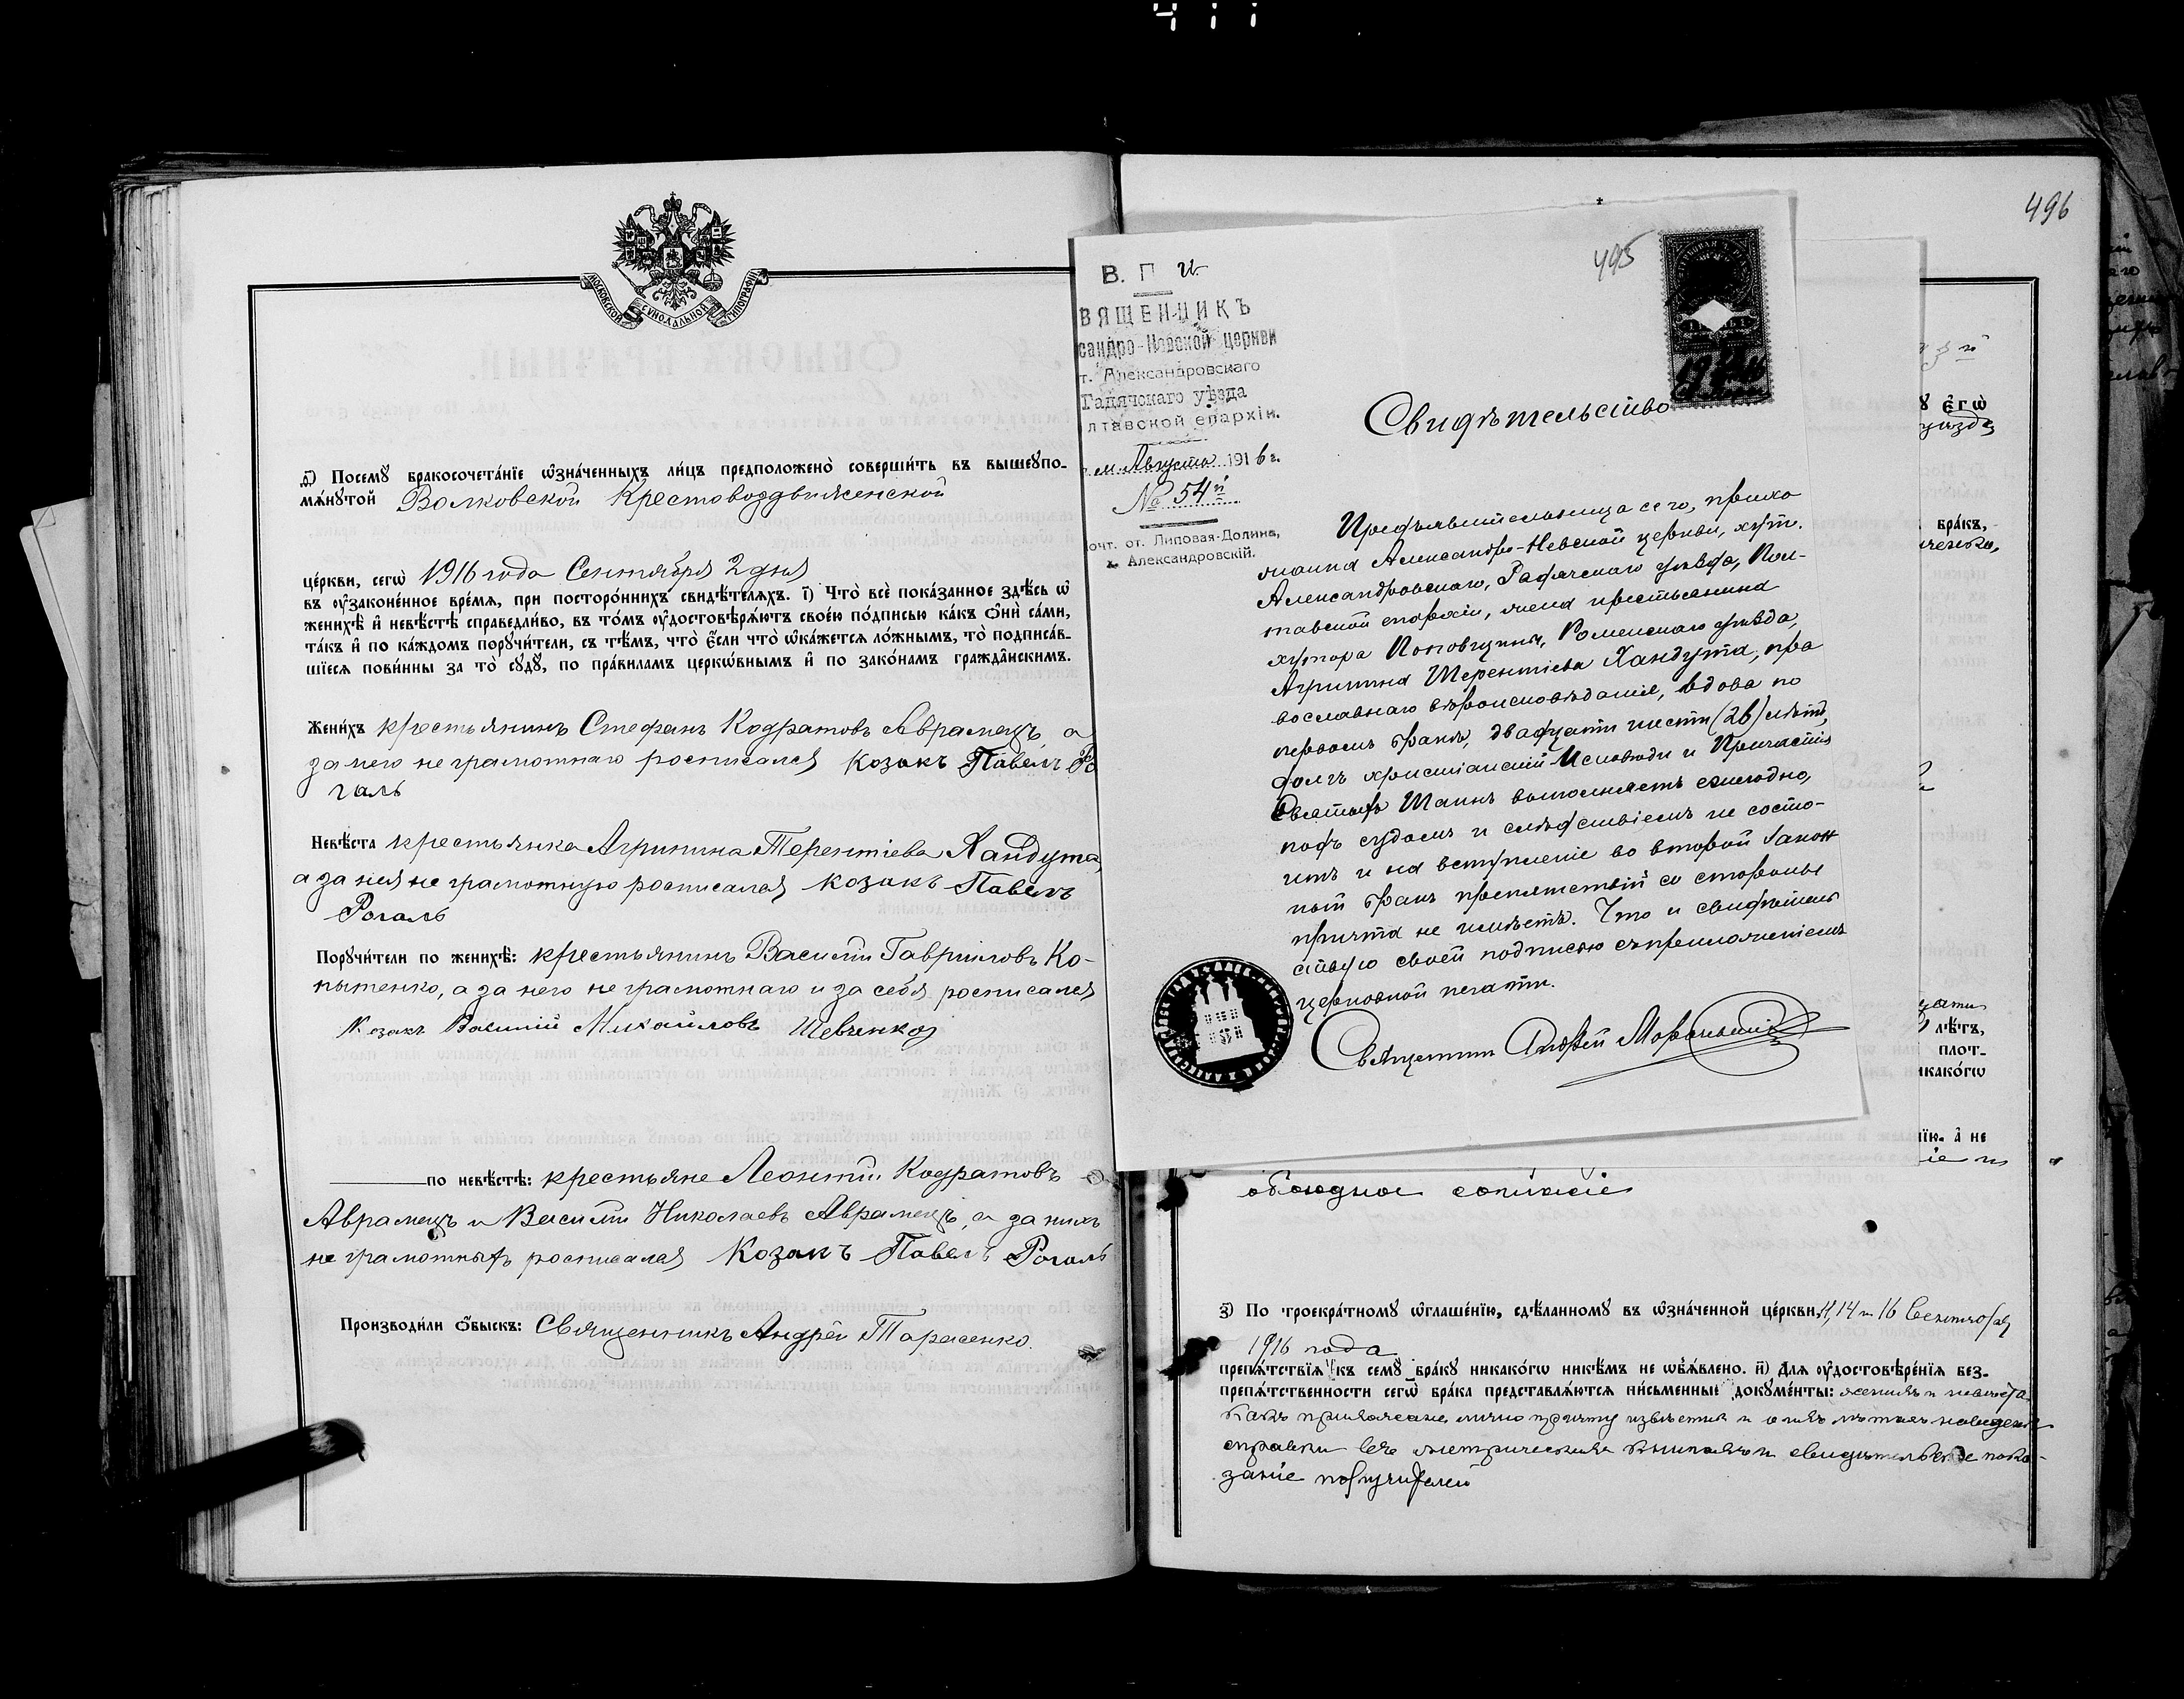 411
МОСКОВСКОЙ СѴНОДАЛЬНОЙ ТИПОГРАФІИ
ѳ҃) Посемꙋ̀ бракосочета́нїе ѡ҆зна́ченныхъ ли́цъ предположено̀ соверши́ть въ вышеꙋпо-
мѧ́нꙋтой Волковской Крестовоздвиженской
це́ркви, сегѡ̀ 1916 года Сентября 2 дня
въ ᲂу҆законе́нное вре́мѧ, при посторо́ннихъ свидѣ́телѧхъ. і҃) Что̀ всѐ пока́занное здѣ́сь ѡ҆
женихѣ̀ и҆ невѣ́стѣ справедли́во, въ то́мъ ᲂу҆достовѣрѧ́ютъ свое́ю по́дписью ка́къ ѻ҆нѝ са́ми,
та́къ и҆ по ка́ждомъ порꙋчи́тели, съ тѣ́мъ, что̀ є҆́сли что̀ ѡ҆ка́жетсѧ ло́жнымъ, то̀ подписа́в-
шїесѧ пови́нны за то̀ сꙋдꙋ̀, по пра́виламъ церкѡ́внымъ и҆ по зако́намъ гражда̂нскимъ.
Жени́хъ крестьянинъ Стефанъ Кодратовъ Аврамецъ, а
за него не грамотнаго росписался козакъ Павелъ Ро
галь
Невѣ́ста крестьянка Агрипина Терентіева Хандута,
а за нея не грамотную росписался козакъ Павелъ
Рогаль
Порꙋчи́тели по женихѣ̀: крестьянинъ Василій Гавриловъ Ко-
пытенко, а за него не грамотнаго и за себя росписался
Козакъ Василій Михайловъ Шевченко
по невѣ́стѣ: крестьяне Леонтій Кодратовъ
Аврамецъ и Василій Николаевъ Аврамецъ, а за нихъ
не грамотныхъ росписался Козакъ Павелъ Рогаль
Производи́ли ѻ҆́быскъ: Священникъ Андрей Тарасенко.
496
495
В. П. И.
ВЯЩЕННИКЪ
сандро-Невской церкви
т. Александровскаго
Гадячскаго уѣзда
лтавской епархіи.
м. Августа 1916 г.
№ 54й
очт. от. Липовая-Долина,
х. Александровскій.
Свидѣтельство
Предъявительница сего, прихо
жанка Александро-Невской церкви, хут.
Александровскаго, Гадячскаго уѣзда, Пол-
тавской епархіи, жена крестьянина
хутора Поповщины, Роменскаго уѣзда,
Агрипина Терентіева Хандута, пра
вославнаго вѣроисповѣданія, вдова по
первомъ бракѣ, двадцати шести (26) лѣтъ,
долгъ христіанскій Исповѣди и Причастія
Святыхъ Таинъ выполняетъ ежегодно,
подъ судомъ и слѣдствіемъ не состо-
итъ и на вступленіе во второй закон
ный бракъ препятствій со стороны
причта не имѣетъ. Что и свидѣтель
ствую своей подписью съ приложеніемъ
церковной печати.
Священникъ Андрей
є҆гѡ̀
уѣзда
бра́къ,
лѣ́тъ,
плот-
и не
обоюдное согласіе
з҃) По троекра́тномꙋ ѡ҆глаше́нїю, сдѣ́ланномꙋ въ ѡ҆зна́ченной це́ркви, 11, 14 и 16 Сентября
1916 года
препѧ́тствїѧ къ семꙋ̀ бра́кꙋ никако́гѡ никѣ́мъ не ѡ҆б̾ѧ́влено. и҃) Длѧ ᲂу҆достовѣре́нїѧ без-
препѧ́тственности сегѡ̀ бра́ка представлѧ́ютсѧ пи́сьменные докꙋме́нты: женихъ и невѣста
какъ прихожане лично причту извѣстны и о ихъ лѣтахъ наведены
справки въ метрическихъ книгахъ и свидѣтельское пока-
заніе поручителей